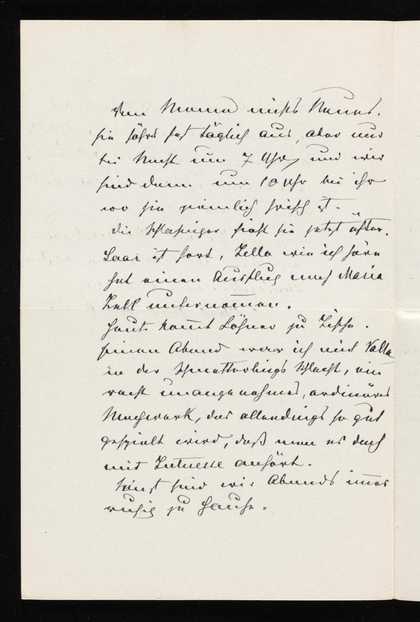 Von Mama nichts Neues.
Sie fährt fast täglich aus, aber nur
bei Nacht um 7 Uhr und wir
sind dann um 10 Uhr bei ihr
wo sie ziemlich frisch ist.
Die Schlafiger sieht sie jetzt öfter.
Saar ist fort, Zella wie ich höre
hat einen Ausflug nach Maria
Zell unternommen.
Heute kommt Löhner zu Tisch.
Einen Abend war ich mit Valla
in der Schmetterlings Schlacht, ein
recht unangenehmes, ordinäres
Machwerk, das allerdings so gut
gespielt wird, daß man es doch
mit Interesse anhört.
Sonst sind wir Abends immer
ruhig zu Hause.